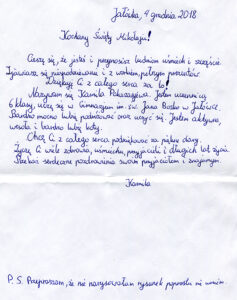 Jałówka, 4 grudnia 2018
Kochany Święty Mikołaju!
Cieszę się, że jesteś i przynosisz ludziom uśmiech i szczęście.
Zjawiasz się niespodziewanie i z workiem pełnym prezentów
Dziękuję Ci z całego serca za to!
Nazywam się Kamila Jestem uczennicą
6 klasy, uczę się w Gimnazjum im. św. Jana Bosko w
Bardzo mocno lubię podróżować oraz uczyć się. Jestem aktywna,
wesoła i bardzo lubię koty.
Chcę Ci z całego serca podziękować za piękne dary.
Życzę Ci wiele zdrowia, uśmiechu, przyjaciół i długich lat życia.
Przekaż serdeczne pozdrowienia swoim przyjaciołom i znajomym.
Kamila
P. S. Przepraszam, że nie narysowałam rysunek poprostu nie umiem.